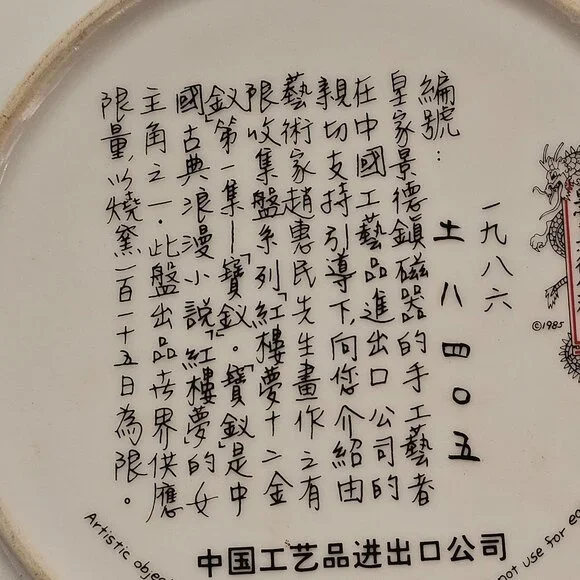 ©1985
一九八六
土八四〇五
編號：
皇家景德鎮磁器的手工藝者
在中國工藝品進出口公司的
親切支持引導下,向您介紹由
藝術家趙惠民先生畫作之有
限收集盤系列「紅樓夢十二金
釵」第一集—「寶釵」。「寶釵」是中
國古典浪漫小說「紅樓夢」的女
主角之一．此盤出品世界供應
限量,以燒窯一百一十五日為限。
中国工艺品进出口公司
Artistic
not use for